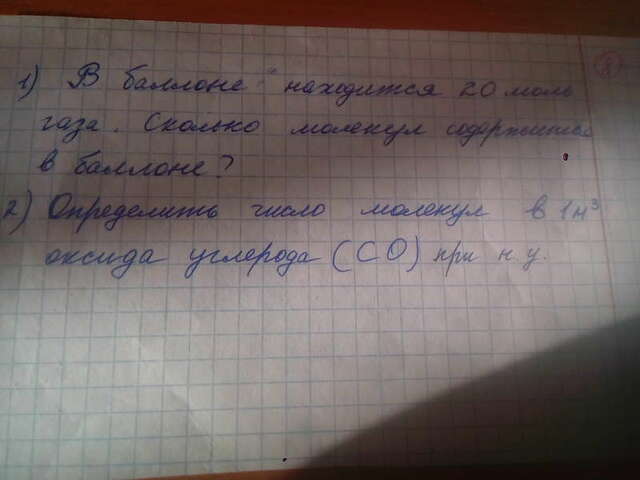 8
1) В баллоне находится 20 моль
газа. Сколько молекул содержится
в баллоне?
2) Определить число молекул в 1м³
оксида углерода (CO) при н.у.